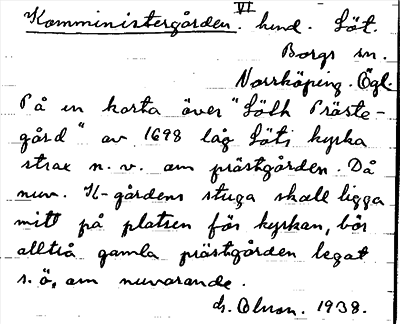 VI
Komministergården. hmd. Löt.
Borgs sn.
Norrköping. Ögl.
På en karta över "Löth Präste-
gård" av 1698 låg Löts kyrka
strax n.v. om prästgården. Då
nuv. K-gårdens stuga skall ligga
mitt på platsen för kyrkan, bör
alltså gamla prästgården legat
s.ö. om nuvarande.
1938.